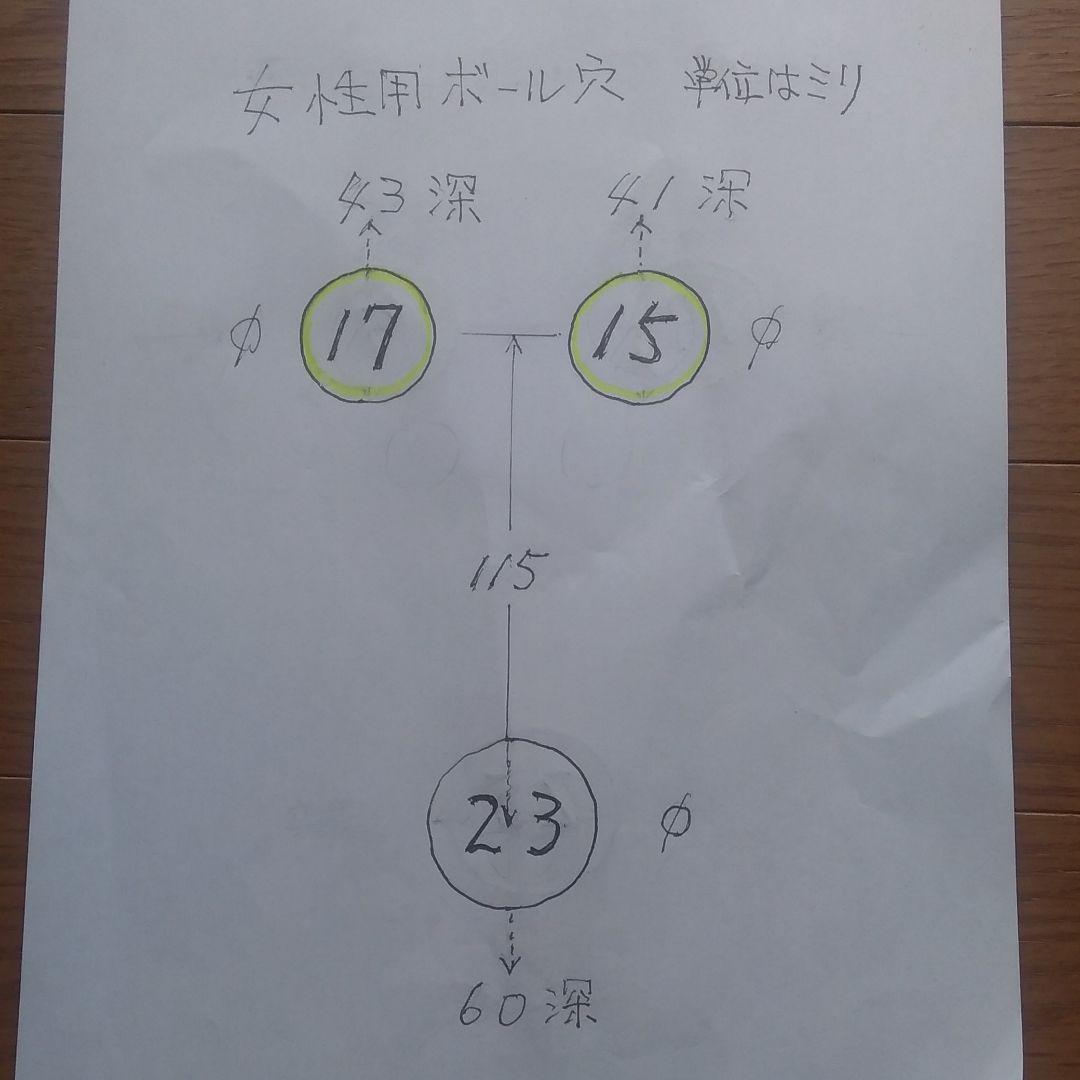 女性用ボール穴 単位はミリ
43深 41深
φ 17 15 φ
115
23 φ
60深